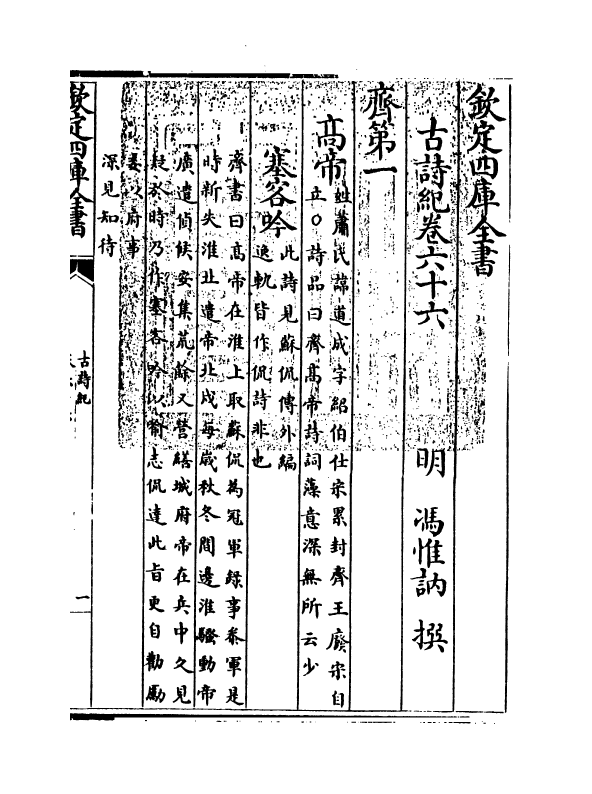 欽定四庫全書
古詩紀卷六十六
明 馮惟訥 撰
齊第一
高帝
姓蕭氏諱道成字紹伯仕宋累封齊王廢宋自
立○詩品曰齊高帝詩詞藻意深無所云少
塞客吟
此詩見蘇侃傳外編
逸軌皆作侃詩非也
齊書曰高帝在淮上取蘇侃為冠軍録事叅軍是
時新失淮北遣帝北戍每歳秋冬間邊淮騷動帝
廣遣偵候安集荒餘又營繕城府帝在兵中久見
疑於時乃作塞客吟以喻志侃達此旨更自勸勵
委以府事
深見知待
欽定四庫全書
古詩紀
一